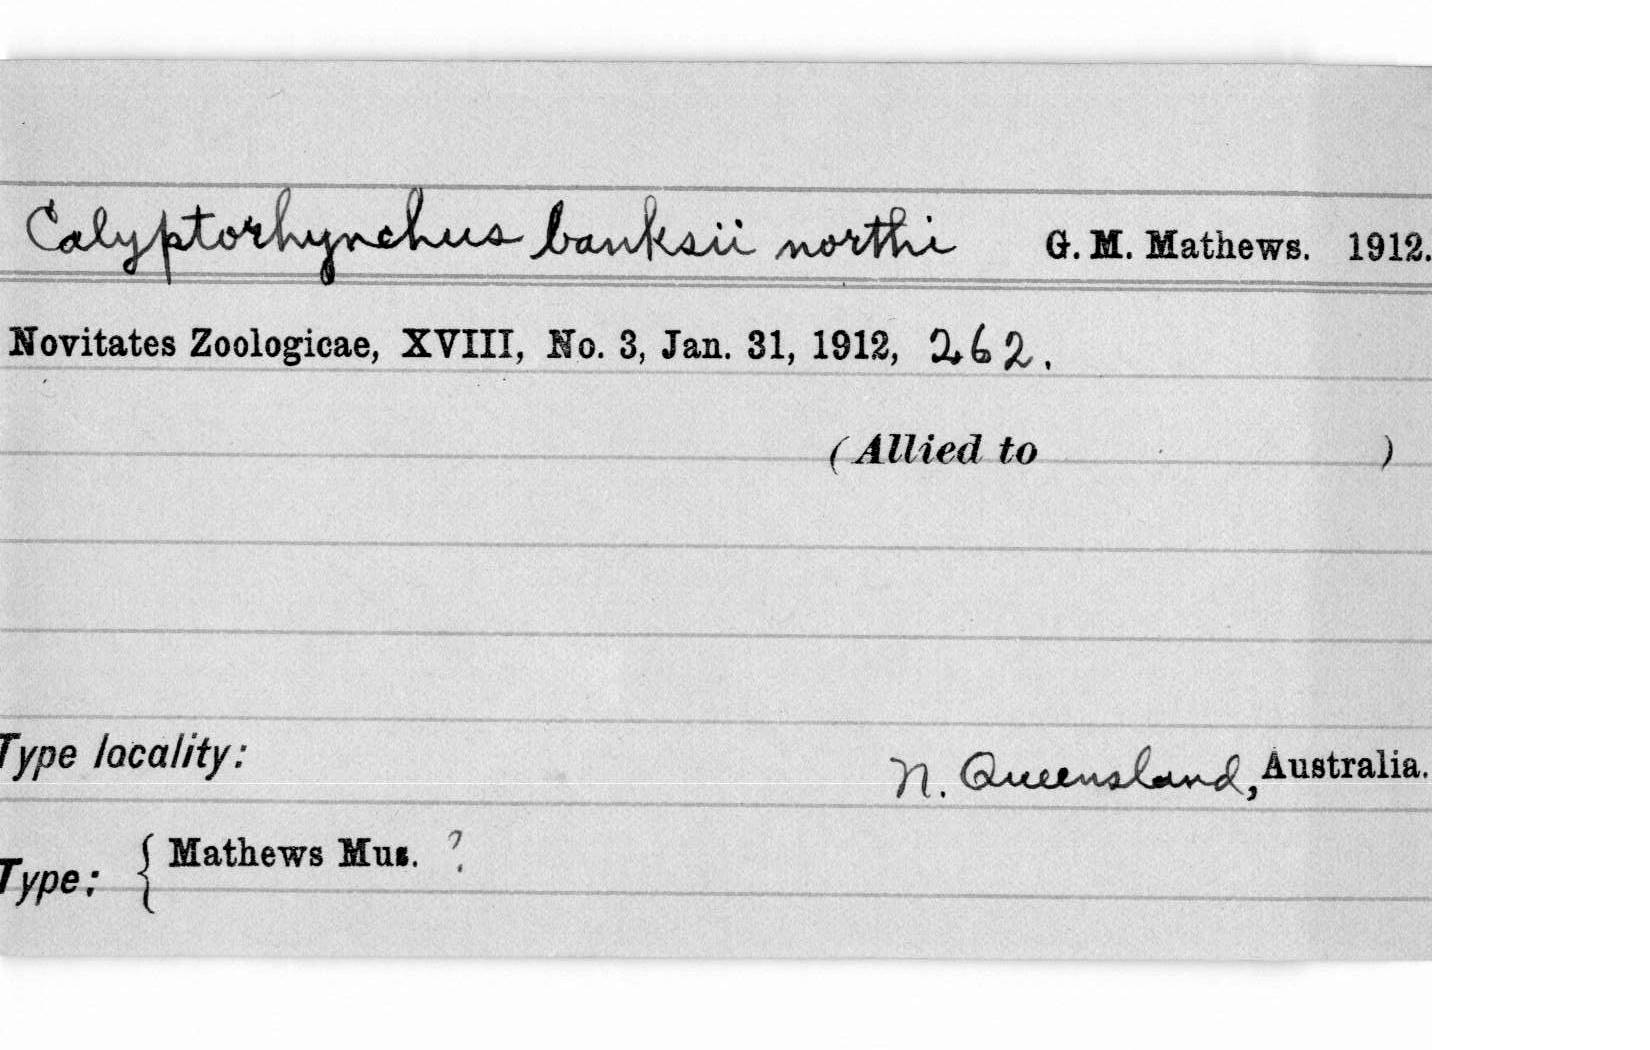 Calyptorhynchus banksii northi G. M. Mathews. 1912.
Novitates Zoologicae, XVIII, No. 3, Jan. 31, 1912, 262.
(Allied to )
Type locality: N. Queensland, Australia.
Type: { Mathews Mus. ?